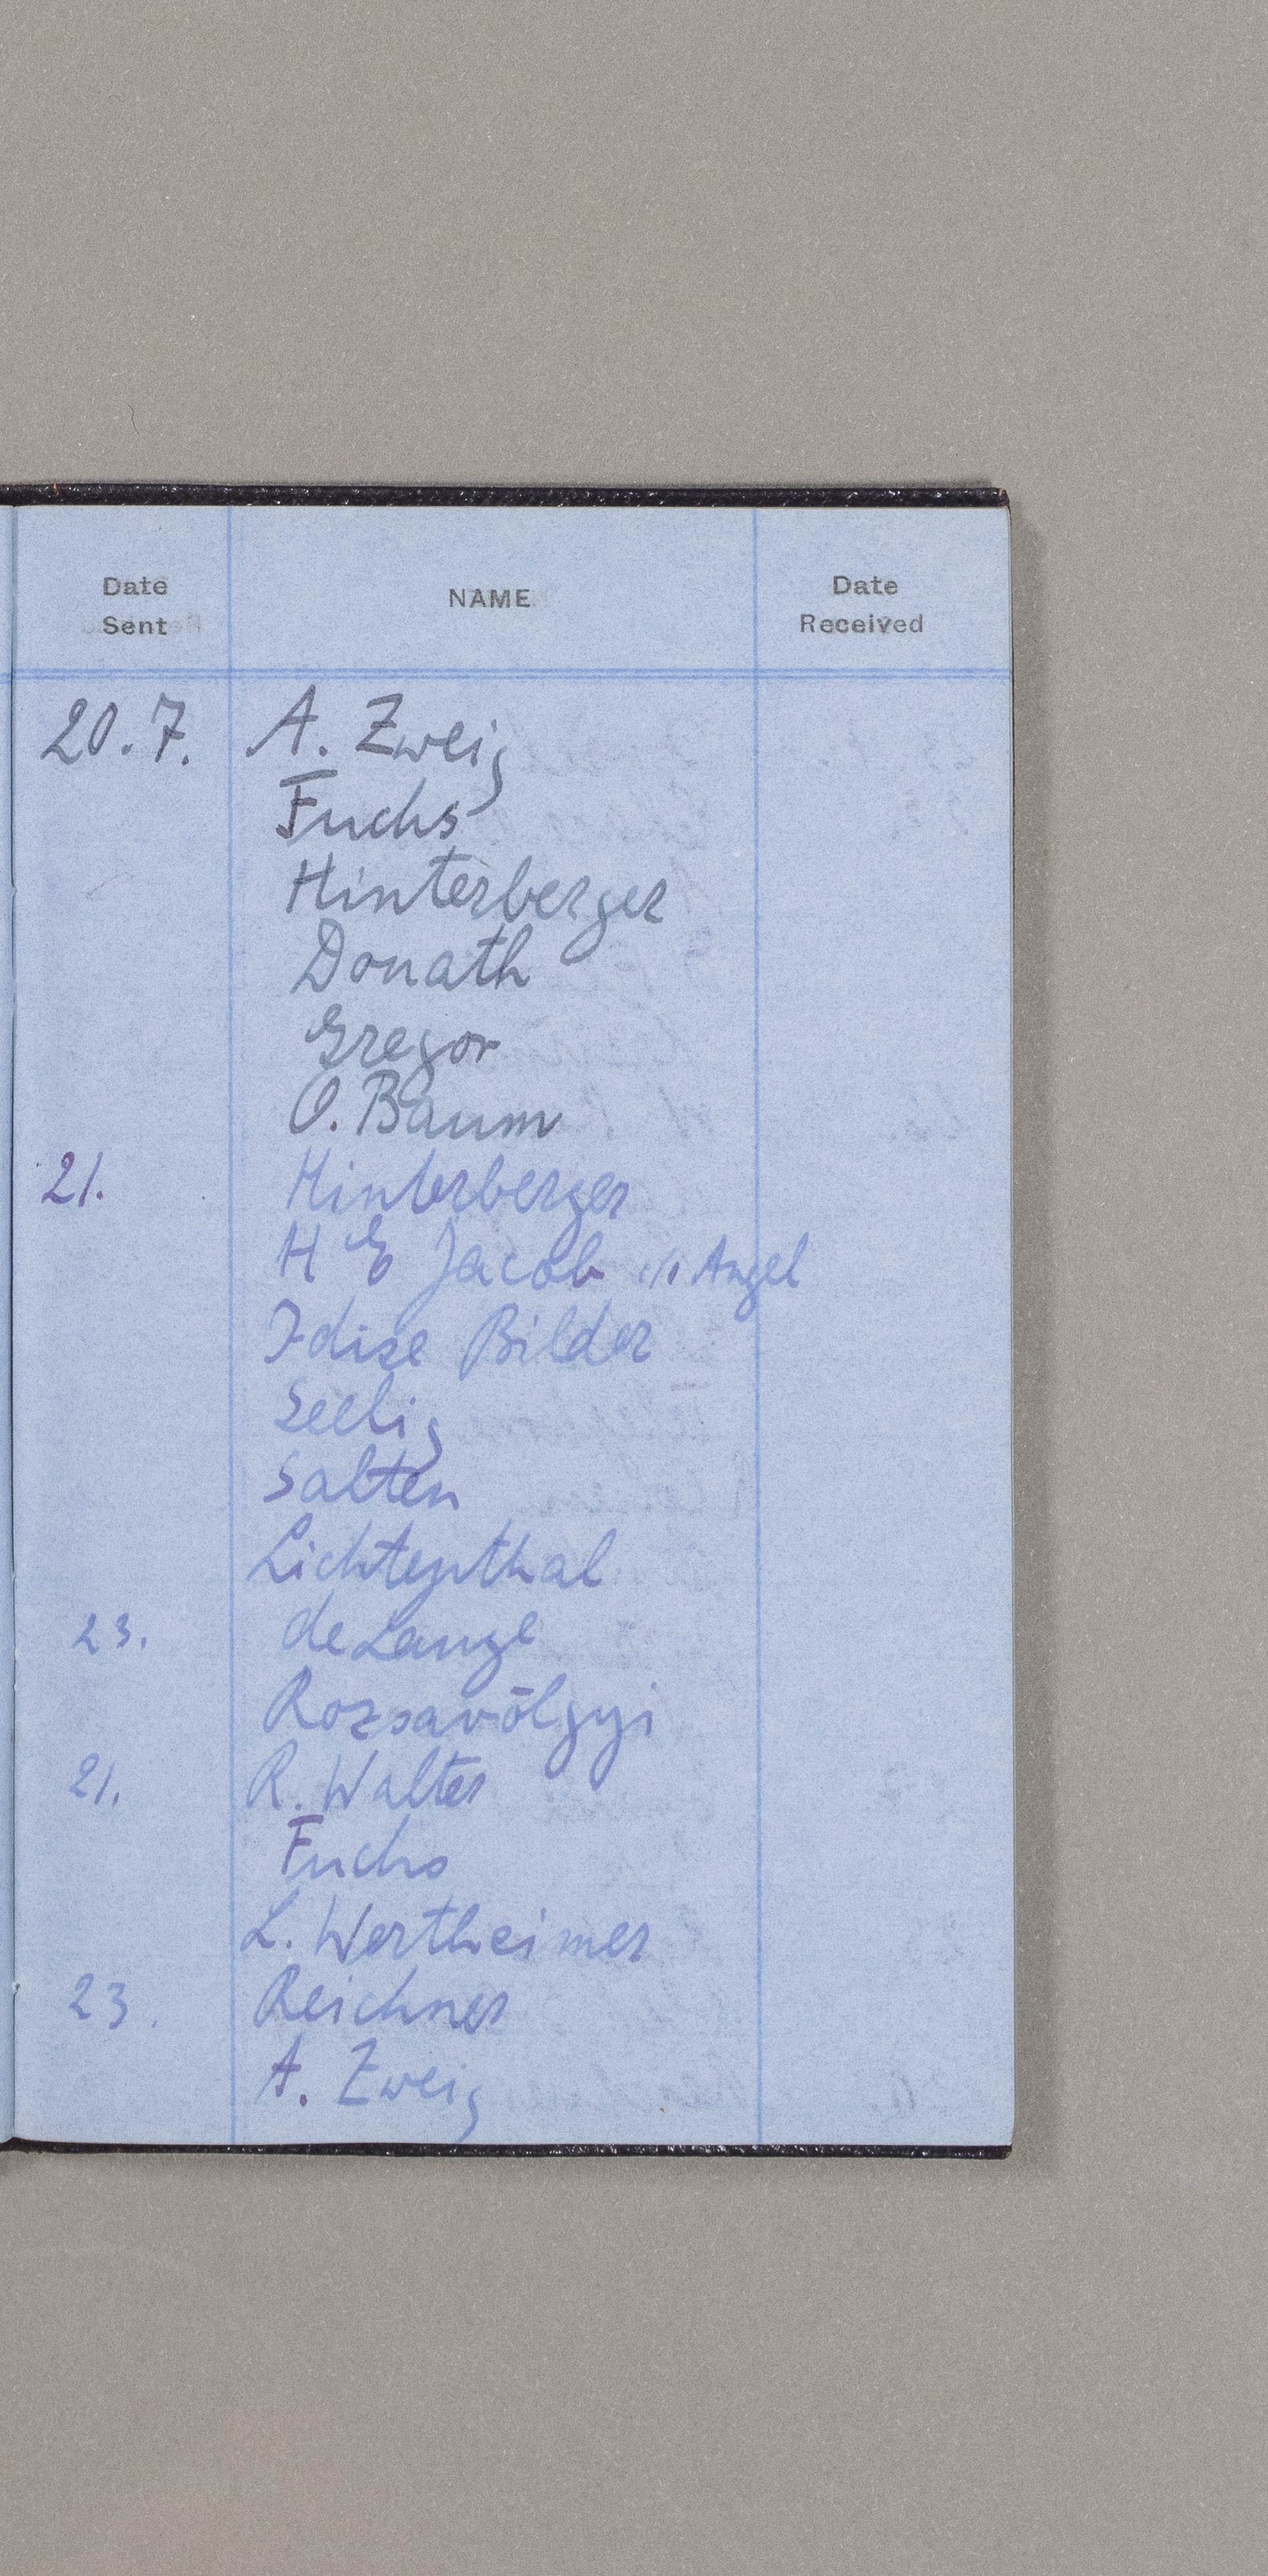 Date Sent NAME Date Received
20.7. A. Zweig
Fuchs
Hinterberger
Donath
Gregor
O. Baum
21. Hinterberger
H E Jacob Angel
Idise Bilder
Seelig
Salten
Lichtenthal
23. de Lange
Rozsavölgyi
21. R. Walter
Fuchs
L. Wertheimer
23. Reichner
A. Zweig